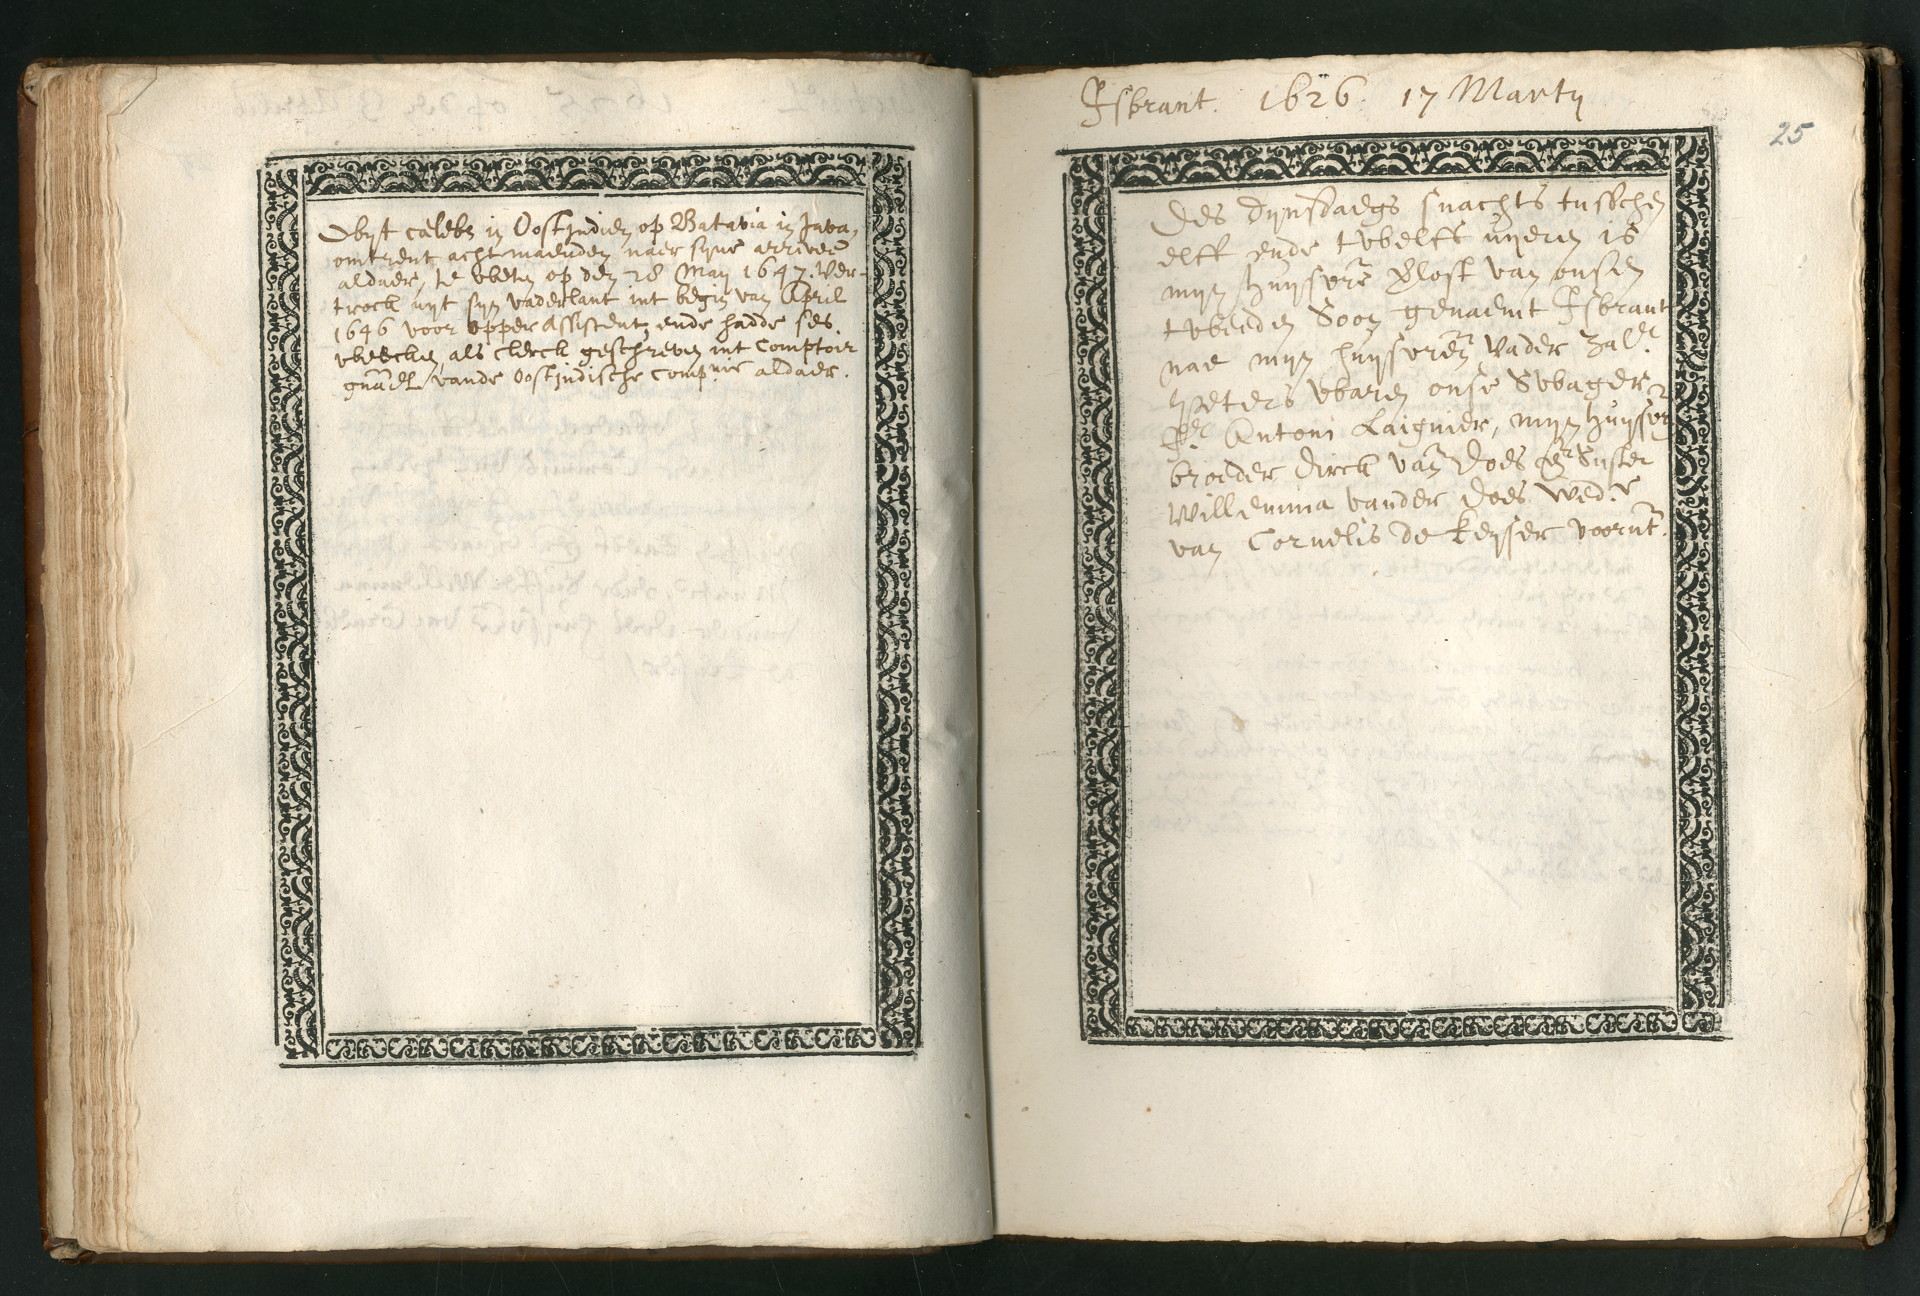 Obyt cælebs in Oostindien op Batavia in Java,
omtrent acht maenden naer syne arrivee
aldaer, te weten op den 28 May 1647. Ver-
trock uyt syn vaderlant int begin van April
1646 voor opper Assistent, ende hadde ses
weecken als clerck geschreven int Comptoir
gnãel vande Oostindische Compnie aldaer.
Isbrant. 1626. 17 Marty
25
Des dynsdaegs snachts tusschen
elff ende twelff uyeren is
myn huysvre verlost van onsen
tweeden Soon genaemt Isbrant
nae myn huysvren Vader Zalr.
Peters waren onse Swager
Jr. Antoni Laignier, myn huysvre
broeder Dirck van Does Suster
Willemina vander Does Wed.e
van Cornelis de Keyser voornt.